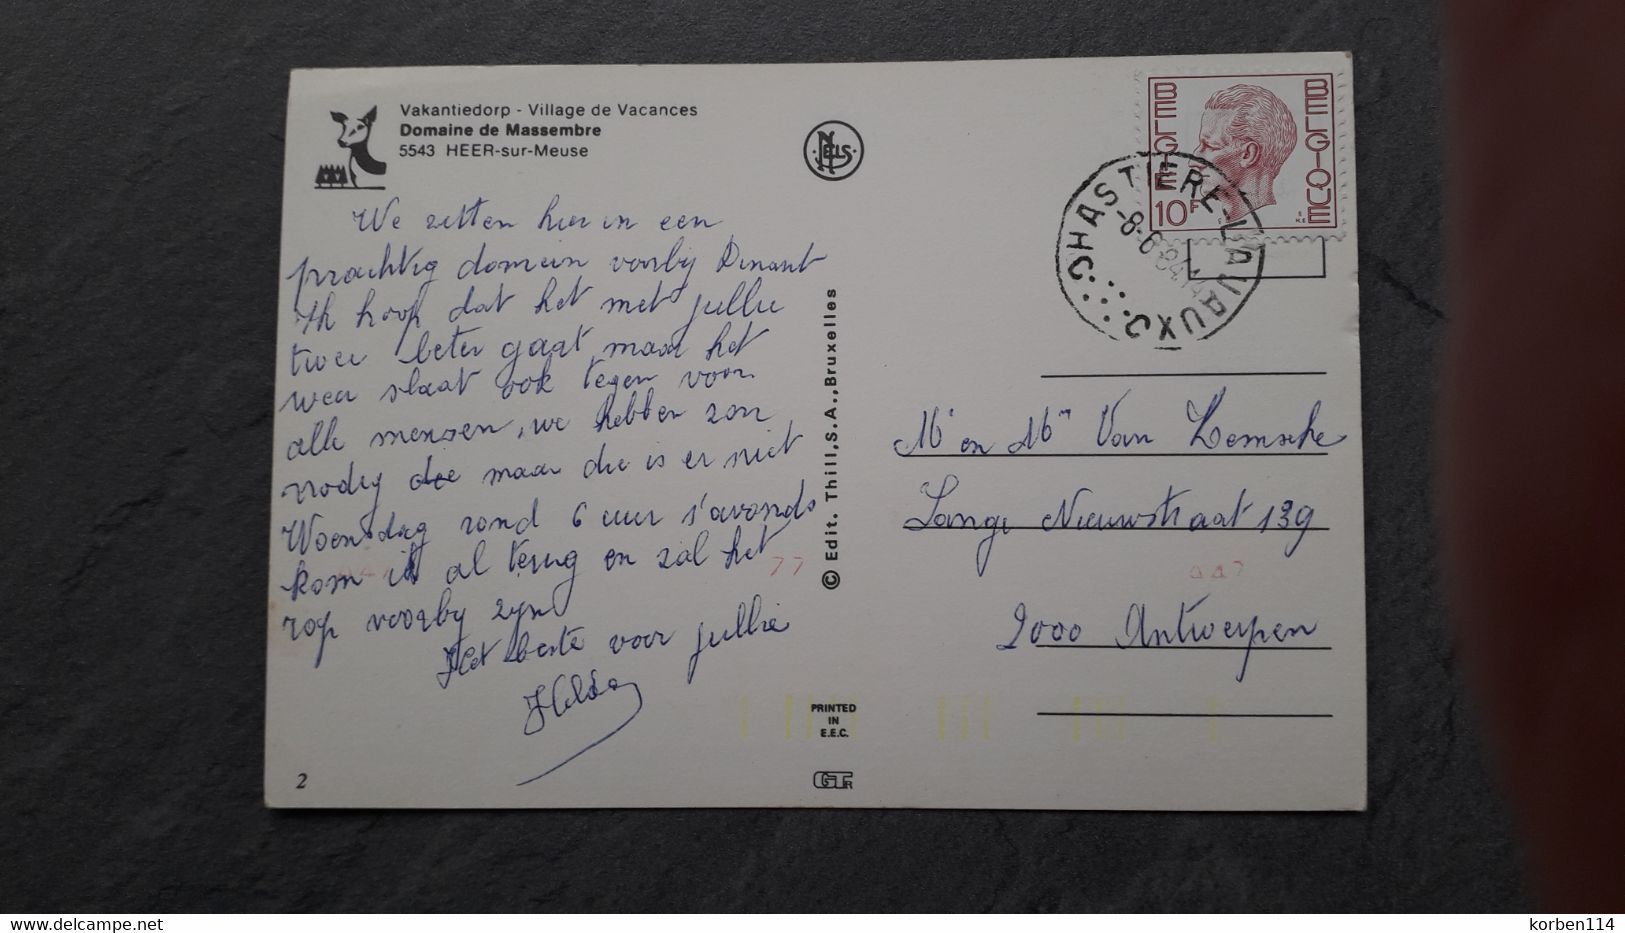 Vakantiedorp - Village de Vacances
Domaine de Massembre
5543 HEER-sur-Meuse
NELS
BELGIE BELGIQUE
10F
HASTIERE-LAVAUX
-8-6-84
We zitten hier in een
prachtig domein voorbij Dinant
Ik hoop dat het met jullie
twee beter gaat, maar het
weer slaat ook tegen voor
alle mensen, we hebben zon
nodig maar die is er niet
Woensdag rond 6 uur s'avonds
kom ik al terug en zal het
rop voorby zyn
Het beste voor jullie
Hilda
© Edit. Thill, S.A., Bruxelles
Mr en Mm Van Lemsche
Lange Nieuwstraat 139
2000 Antwerpen
PRINTED
IN
E.E.C.
2
GTR
delcampe.net
korben114